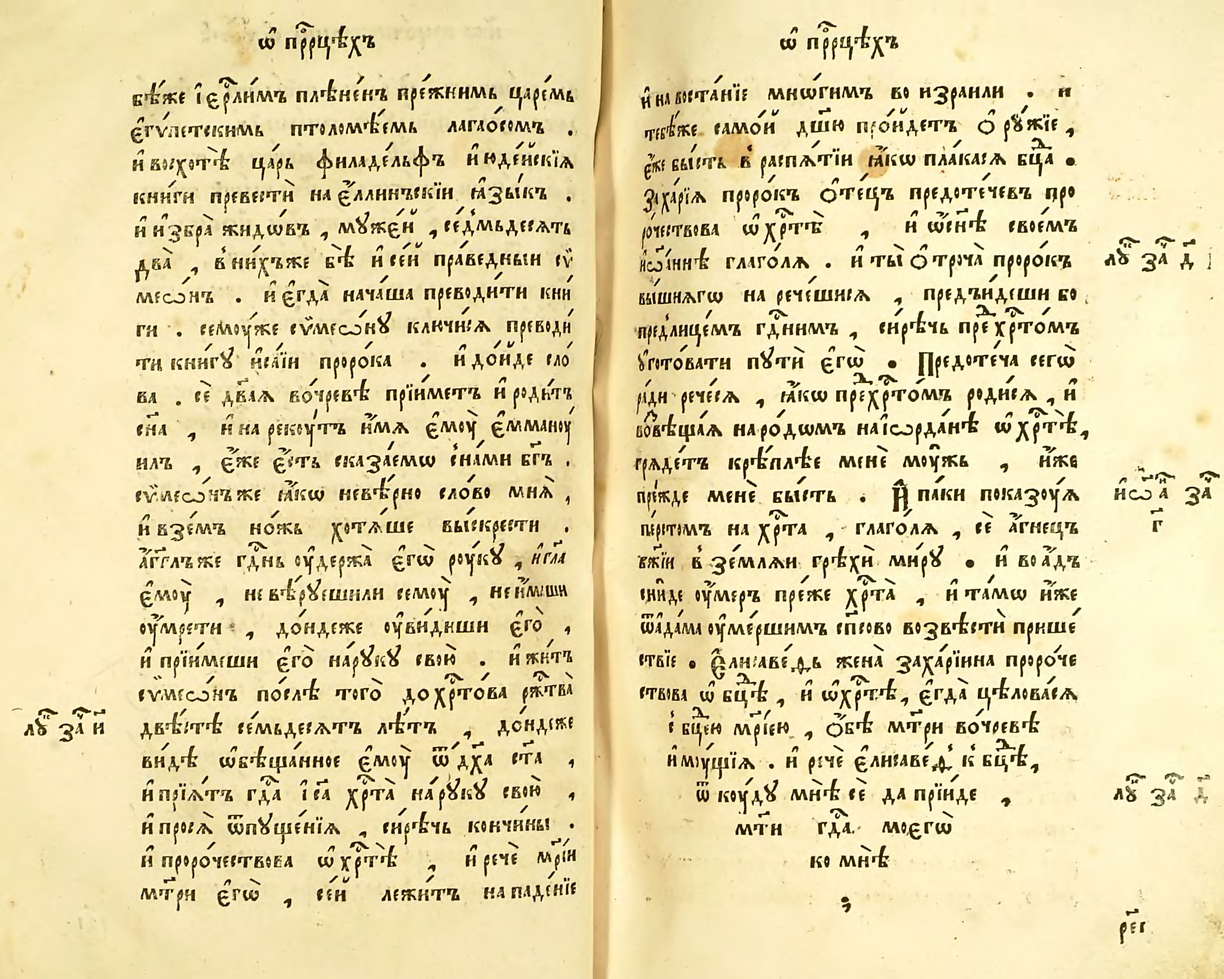 ѡ҆ прⷪ҇рцѣхъ
бѣ́же і҆ерⷭ҇ли́мъ плѣне́нъ пре́жнимь царе́мь
є҆гѵ́петскимь птоломѣ́емь лагаѻ́сомъ .
и҆ восхотѣ̀ ца́рь филаде́льфъ и҆ юде́йскїѧ
кни́ги превестѝ на є҆́ллинъскїи ꙗ҆зы́къ .
и҆ и҆збра̀ жидѡ́въ , муже́й , се́дмьдесѧтъ
два̀ , в ни́хъже бѣ̀ и҆ се́й пра́ведныи сѵ
месѡ́нъ . и҆ є҆гда̀ нача́ша преводи́ти кни
ги . семоу́же сѵмесѡ́ну ключи́сѧ преводи́
ти кни́гꙋ и҆са́їи проро́ка . и҆ до́йде сло́
ва . сѐ дв҃аѧ во́чревѣ прїи́метъ и҆ роди́тъ
сн҃а , и҆ на рекоу́тъ и҆́мѧ є҆моу̀ є҆мманоу
илъ , є҆́же є҆́сть сказа́емѡ с на́ми бг҃ъ .
сѵмесѡ́нъже ꙗ҆́кѡ невѣ́рно сло́во мнѧ̀ ,
и҆ взе́мъ но́жь хотѧ́ше вы́скрести .
а҆́гг҃лъже гдⷭ҇нь оу҆держа̀ є҆гѡ̀ роу́кꙋ , и҆ гл҃а
є҆моу̀ , не вѣ́рꙋеши ли семоу̀ , не и҆́маши
оу҆мре́ти , до́ндеже оу҆ви́диши є҆го̀ ,
и҆ прїи́меши є҆го̀ на́рꙋкꙋ свою̀ . и҆ жи́тъ
сѵмесѡ́нъ по́слѣ того̀ до хрⷭ҇то́ва ржⷭ҇тва̀
лꙋⷦ҇ заⷱ҇ и҃
двѣ́стѣ се́мьдесѧтъ лѣ́тъ , до́ндеже
ви́дѣ ѡ҆бѣща́нное є҆моу̀ ѿ дх҃а ст҃а ,
и҆ прїѧ́тъ гдⷭ҇а і҆с҃а хрⷭ҇та̀ на́рꙋкꙋ свою̀ ,
и҆ просѧ̀ ѿпꙋще́нїѧ , си́рѣчь кончи́ны .
и҆ проро́чествова ѡ҆ хрⷭ҇тѣ̀ , и҆ речѐ мр҃їи
мт҃ри є҆гѡ̀ , се́й лежи́тъ на паде́нїе
ѡ҆ прⷪ҇рцѣхъ
и҆ на воста́нїе мнѡ́гимъ во и҆зраили . и
тебѣ́же само́й дш҃ю про́йдетъ ѻ҆рꙋ́жїе ,
є҆́же бы́сть в распѧ́тїи ꙗ҆́кѡ пла́касѧ бцⷣа .
Заха́рїѧ проро́къ ѻ҆те́цъ предоте́чевъ про
ро́чествова ѡ҆ хрⷭ҇тѣ̀ , и҆ ѡ҆ сн҃ѣ свое́мъ
и҆ѡ҆а́ннѣ глаго́лѧ . и҆ ты̀ ѻ҆троча̀ проро́къ
лꙋⷦ҇ заⷱ҇ д҃
вы́шнѧгѡ нарече́шисѧ , пред̾и́деши бо
предлице́мъ гдⷭ҇нимъ , си́рѣчь пред̾хрⷭ҇то́мъ
уготовати пꙋтѝ є҆гѡ̀ . Предоте́ча сегѡ̀
ра́ди рече́сѧ , ꙗ҆́кѡ пред̾хрⷭ҇то́мъ роди́сѧ , и҆
возвѣща́ѧ наро́дѡмъ на і҆ѡрда́нѣ ѡ҆ хрⷭ҇тѣ̀ ,
грѧде́тъ крѣ́плѣе менѐ моу́жь , и҆́же
пре́жде менѐ бы́сть . И҆ па́ки показоу́ѧ
и҆ѡⷩ҇а заⷱ҇ г҃
пе́рстомъ на хрⷭ҇та̀ , глаго́лѧ , сѐ а҆́гнецъ
бж҃їи взе́млѧи грѣхѝ ми́рꙋ . и҆ во а҆́дъ
сни́де оу҆ме́ръ пре́же хрⷭ҇та̀ , и҆ та́мѡ и҆́же
ѿ а҆да́ма оу҆ме́ршимъ сп҃сово возвѣстѝ прише́
ствїе . Є҆лисаве́ѳь жена̀ заха́рїина проро́че
ствова ѡ҆ бцⷣѣ , и҆ ѡ҆ хрⷭ҇тѣ̀ , є҆гда̀ цѣлова́сѧ
с бцⷣею мр҃їею , ѻ҆́бѣ мт҃ри во́чревѣ
и҆моу́щїѧ . и҆ речѐ є҆лисаве́ѳ к бцⷣѣ ,
ѿ коу́дꙋ мнѣ̀ сѐ да прїи́де ,
лꙋⷦ҇ заⷱ҇ д҃
мт҃и гдⷭ҇а моегѡ̀
ко мнѣ̀
рєг